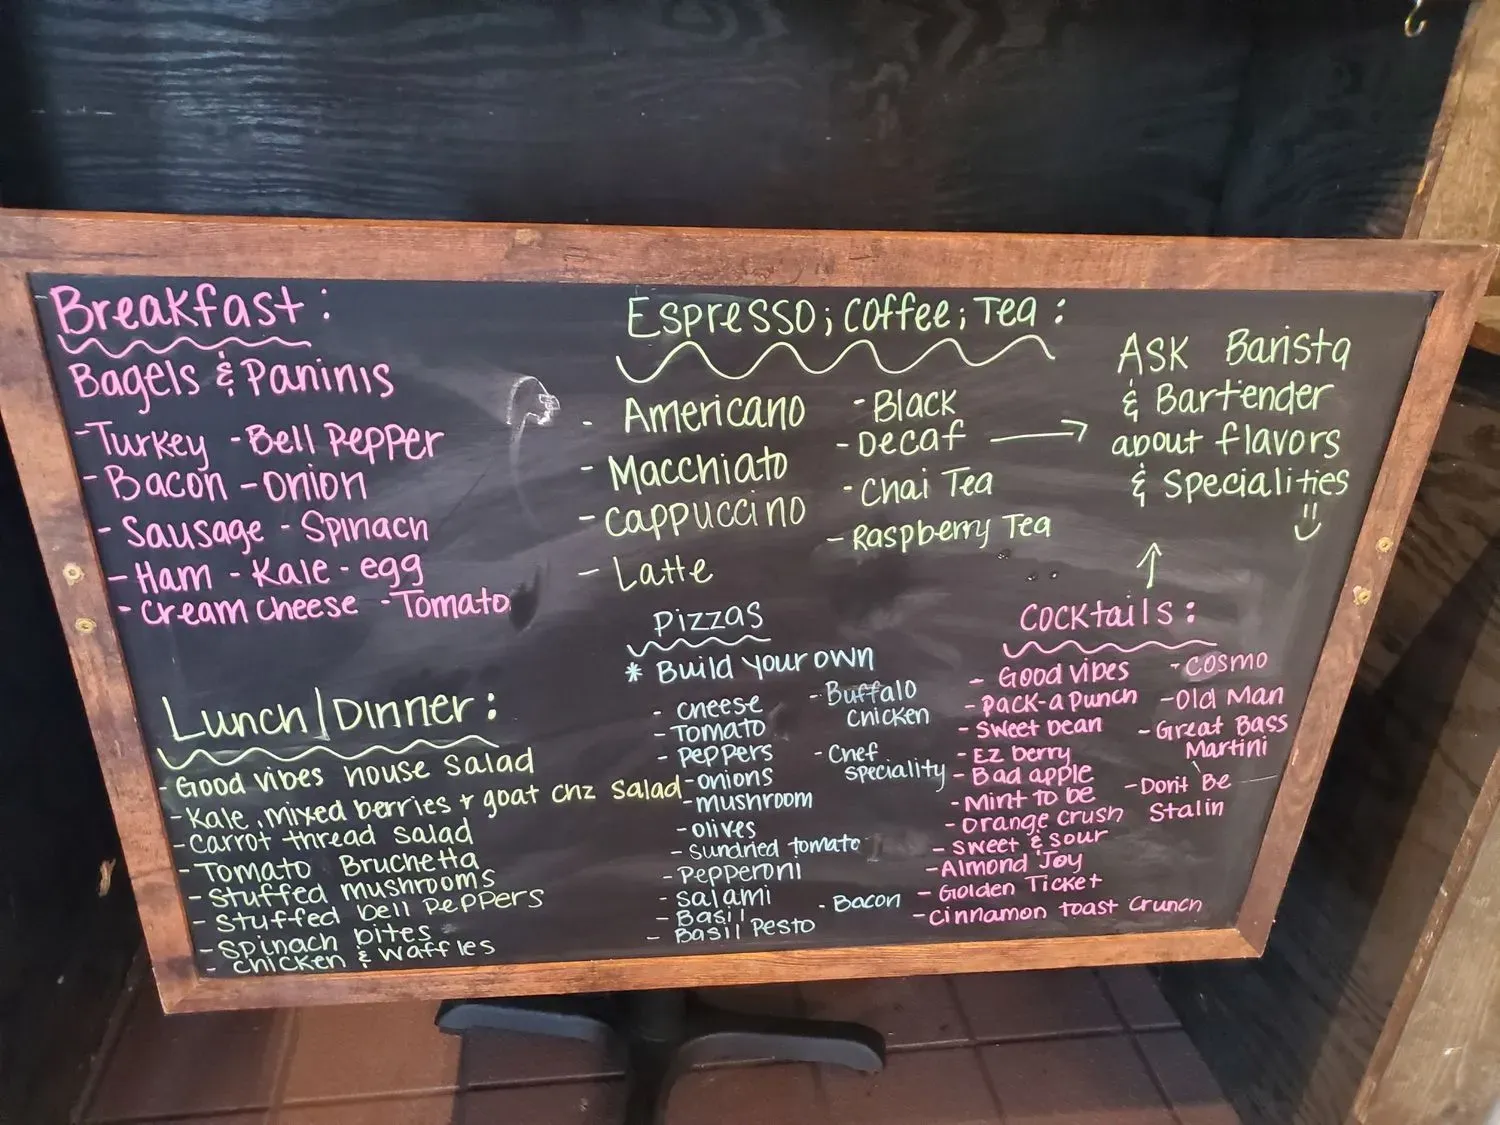 Breakfast:
Bagels & Paninis
-Turkey -Bell Pepper
-Bacon -onion
-Sausage -Spinach
-Ham -Kale -egg
-cream cheese -Tomato
Lunch/Dinner:
-Good vibes house salad
-Kale, mixed berries + goat chz salad
-Carrot thread salad
-Tomato Bruchetta
-Stuffed mushrooms
-Stuffed bell peppers
-Spinach bites
-chicken & waffles
Espresso; coffee; Tea:
- Americano
- Macchiato
- cappuccino
- Latte
-Black
-Decaf
-Chai Tea
-Raspberry Tea
ASK Barista
& Bartender
about flavors
& Specialities
Pizzas
* Build your own
- cheese
-Tomato
-peppers
-onions
-mushroom
-olives
-sundried tomato
-pepperoni
-salami
-Basil
-Basil Pesto
-Buffalo
chicken
-chef
speciality
-Bacon
Cocktails:
-Good vibes
-pack-a punch
-sweet bean
-Ez berry
-Bad apple
-Mint to be
-orange crush
-sweet & sour
-Almond Joy
-Golden Ticket
-cinnamon toast crunch
-cosmo
-Old Man
-Great Bass
Martini
-Don't Be
Stalin